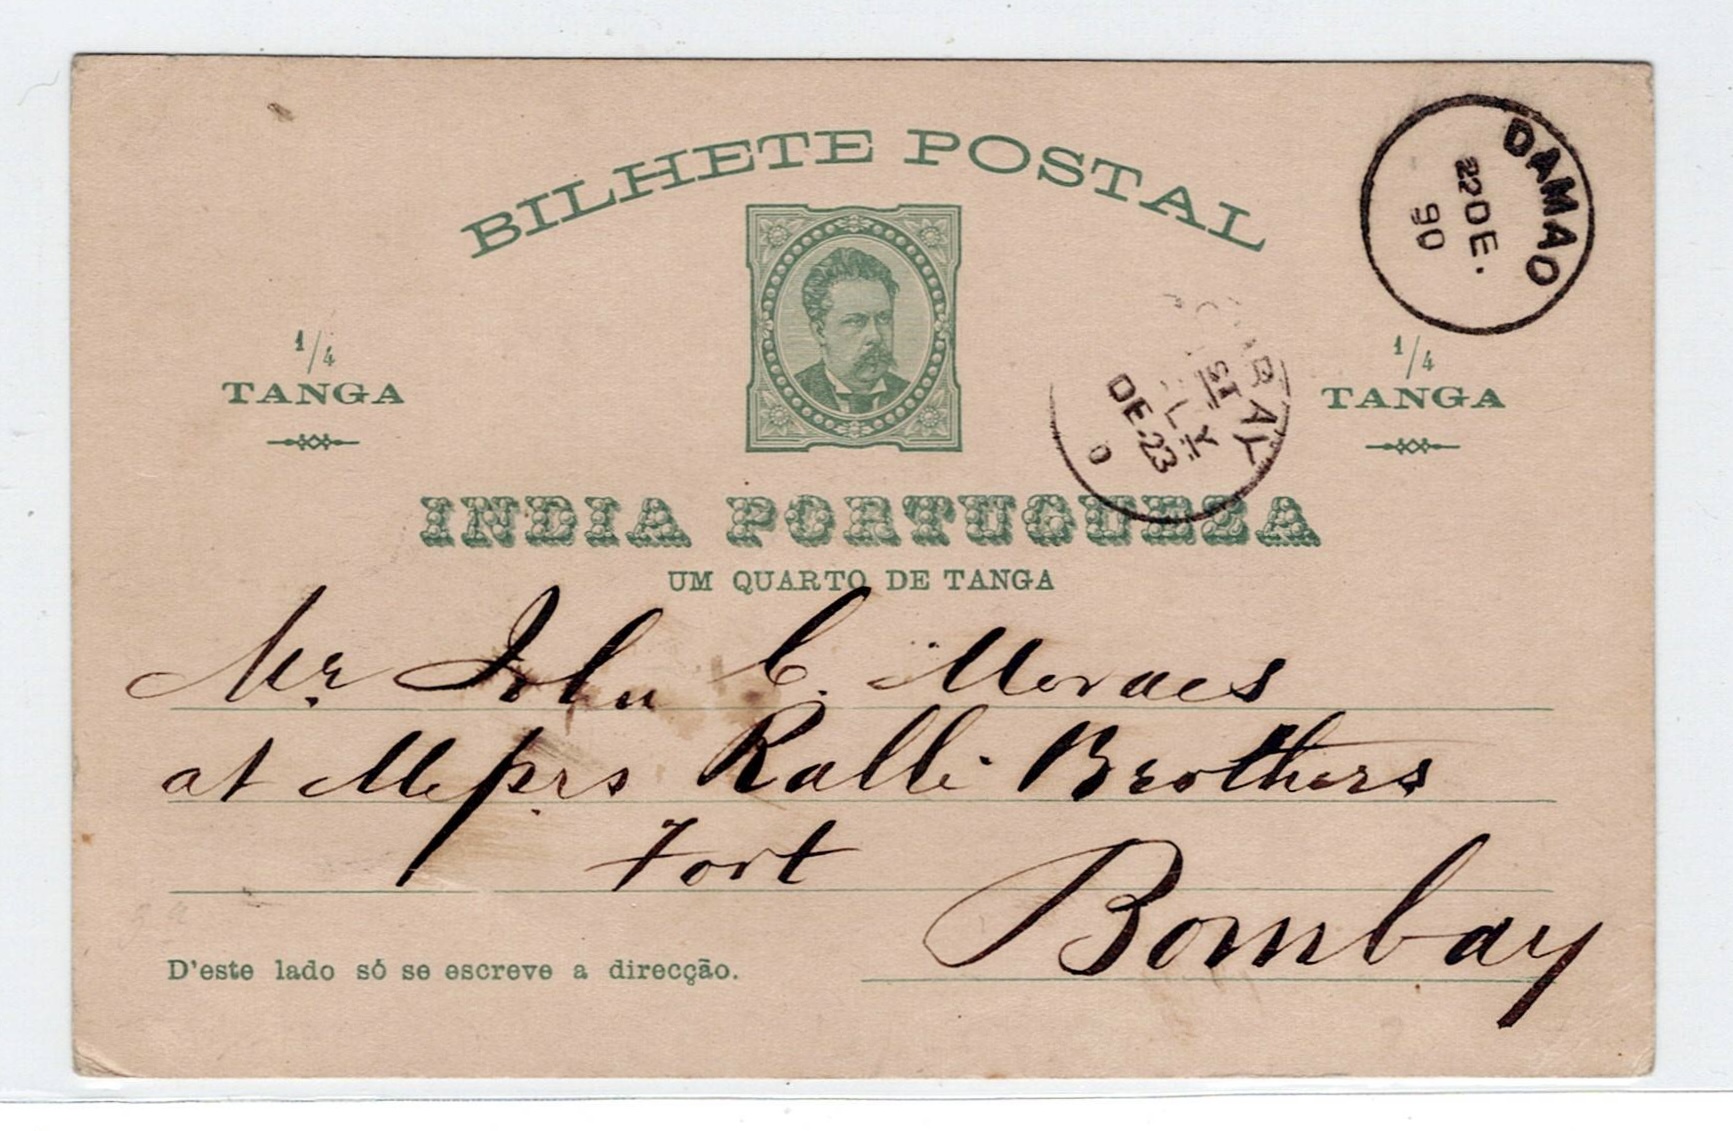 BILHETE POSTAL
DAMAO
22 DE.
90
1/4
TANGA
1/4
TANGA
BOMBAY
1ST
DE.23
INDIA PORTUGUEZA
UM QUARTO DE TANGA
Mr. John C. Moraes
at Messrs Ralli Brothers
Fort
Bombay
D'este lado só se escreve a direcção.